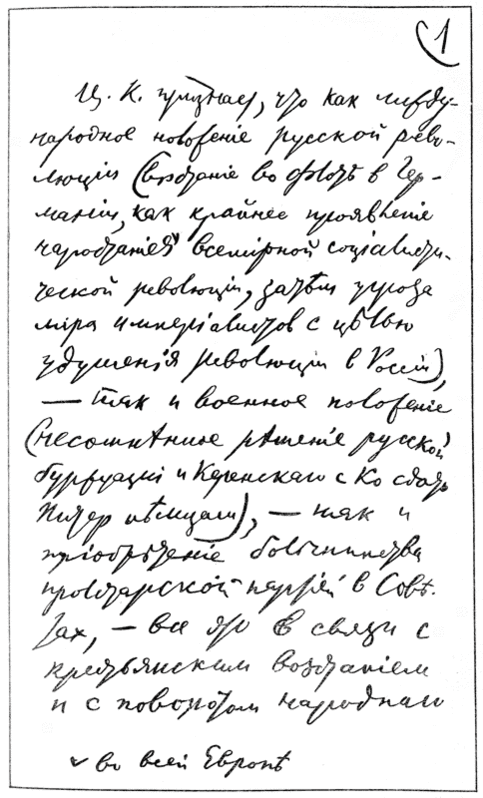 1
Ц. К. признает, что как между-
народное положение русской рево-
люціи (возстаніе во флотѣ в Гер-
маніи, как крайнее проявленіе
наростанія всемірной соціалисти-
ческой революціи, затѣм угроза
мира имперіалистов с цѣлью
удушенія революціи в Россіи),
— так и военное положеніе
(несомнѣнное рѣшеніе русской
буржуазіи и Керенскаго с Ко сдать
Питер нѣмцам), — так и
пріобрѣтеніе большинства
пролетарской партіей в Совѣ-
тах, — все это в связи с
крестьянским возстаніем
и с поворотом народнаго
v во всей Европѣ